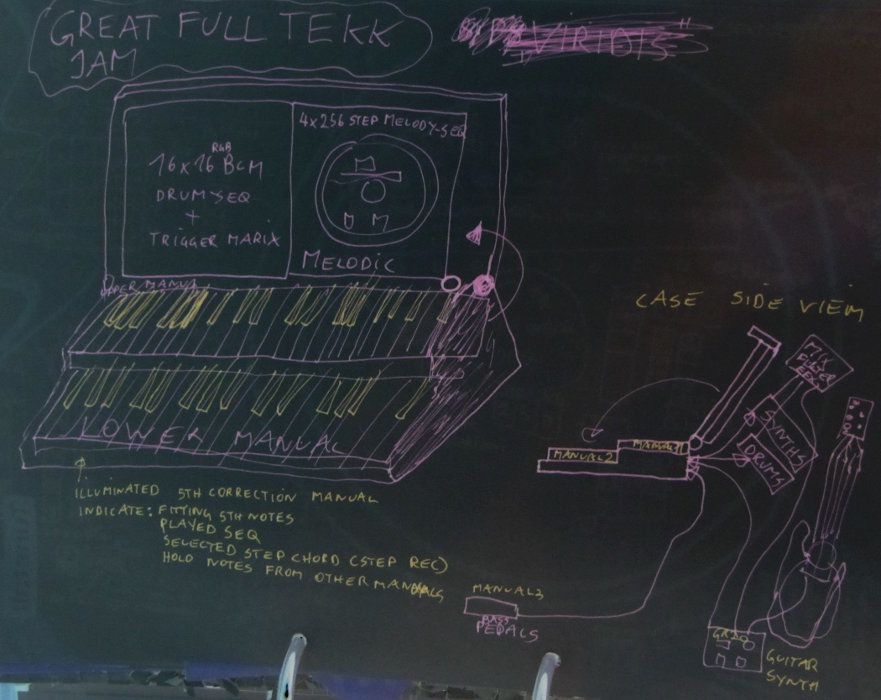 GREAT FULL TEKK
JAM
"VIRIDIS"
4x256 STEP MELODY-SEQ
RGB
16x16 BCM
DRUM SEQ
+
TRIGGER MARIX
MELODIC
UPPER MANUAL
LOWER MANUAL
ILLUMINATED 5TH CORRECTION MANUAL
INDICATE: FITTING 5TH NOTES
PLAYED SEQ
SELECTED STEP CHORD (STEP REC)
HOLD NOTES FROM OTHER MANUALS
CASE SIDE VIEW
FILTER
SYNTHS
DRUMS
MANUAL 1
MANUAL 2
MANUAL3
BASS
PEDALS
GR20
GUITAR
SYNTH